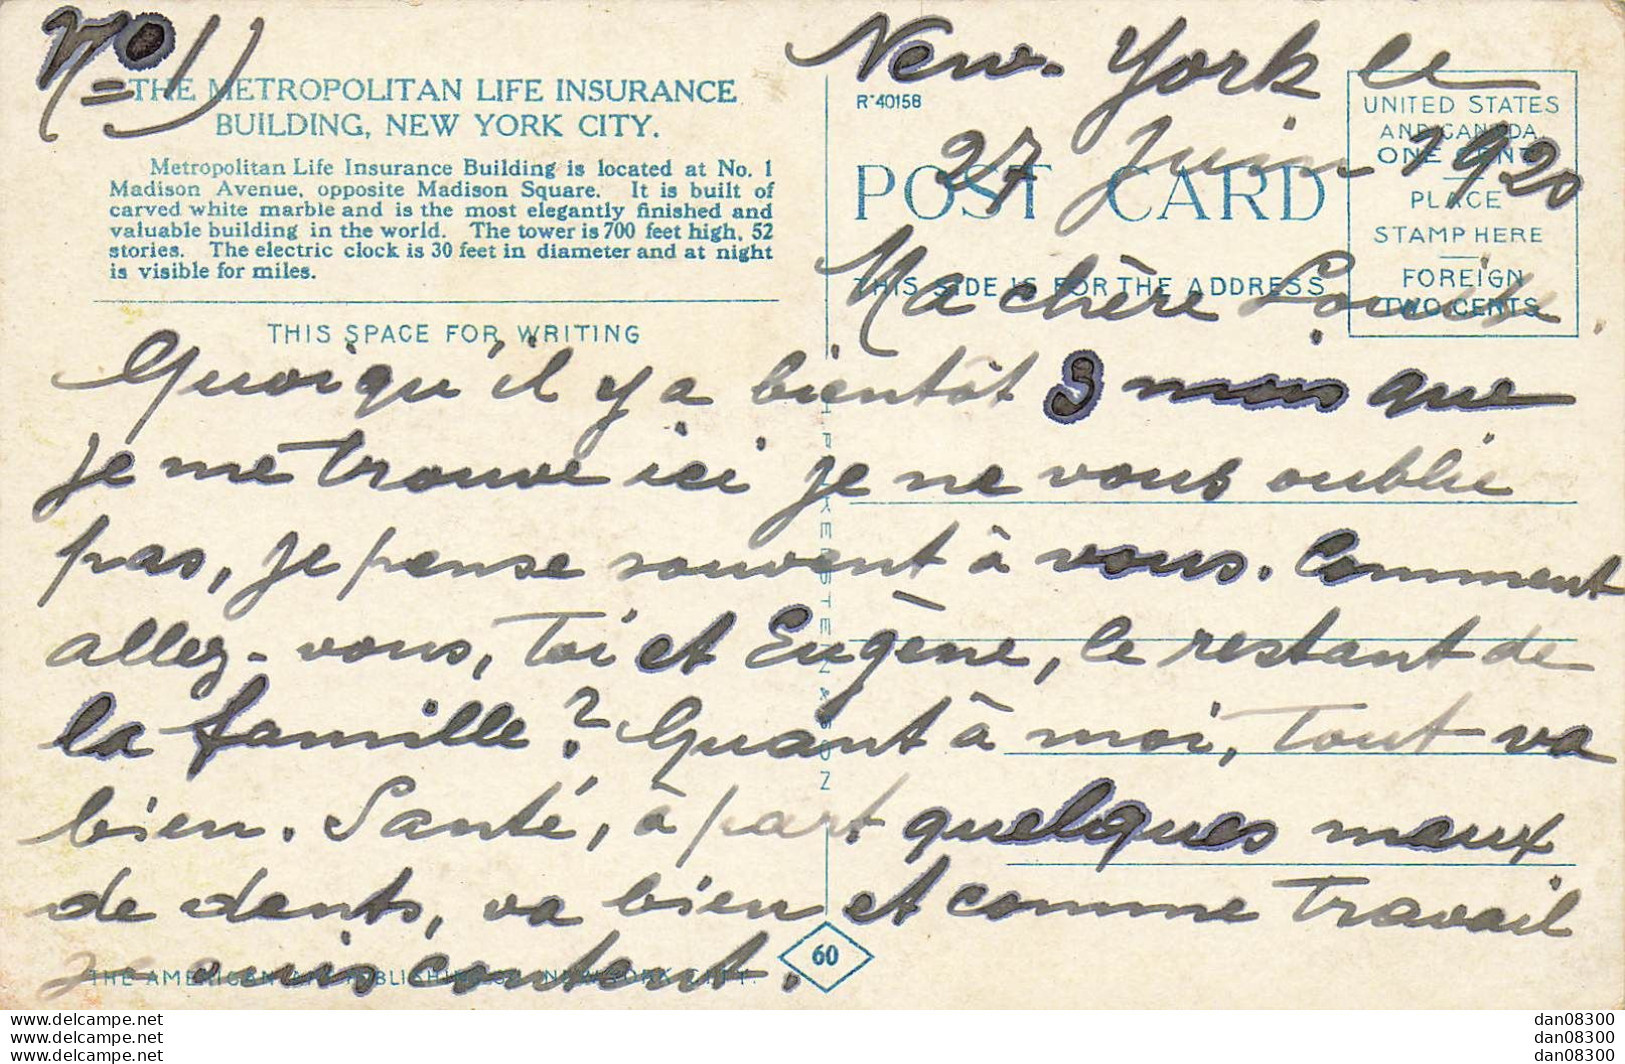 N° 1)
THE METROPOLITAN LIFE INSURANCE
BUILDING, NEW YORK CITY.
Metropolitan Life Insurance Building is located at No. 1
Madison Avenue, opposite Madison Square. It is built of
carved white marble and is the most elegantly finished and
valuable building in the world. The tower is 700 feet high, 52
stories. The electric clock is 30 feet in diameter and at night
is visible for miles.
THIS SPACE FOR WRITING
R-40158
POST CARD
THIS SIDE IS FOR THE ADDRESS
UNITED STATES
AND CANADA
ONE CENT
PLACE
STAMP HERE
FOREIGN
TWO CENTS
New-York le
27 Juin 1920
Ma chère Louise
Quoiqu'il y a bientôt 3 mois que
je me trouve ici je ne vous oublie
pas, je pense souvent à vous. Comment
allez-vous, toi et Eugène, le restant de
la famille? Quant à moi, tout va
bien. Santé, à part quelques maux
de dents, va bien et comme travail
je suis content.
60
THE AMERICAN ART PUBLISHING CO. NEW YORK CITY.
www.delcampe.net
www.delcampe.net
www.delcampe.net
dan08300
dan08300
dan08300